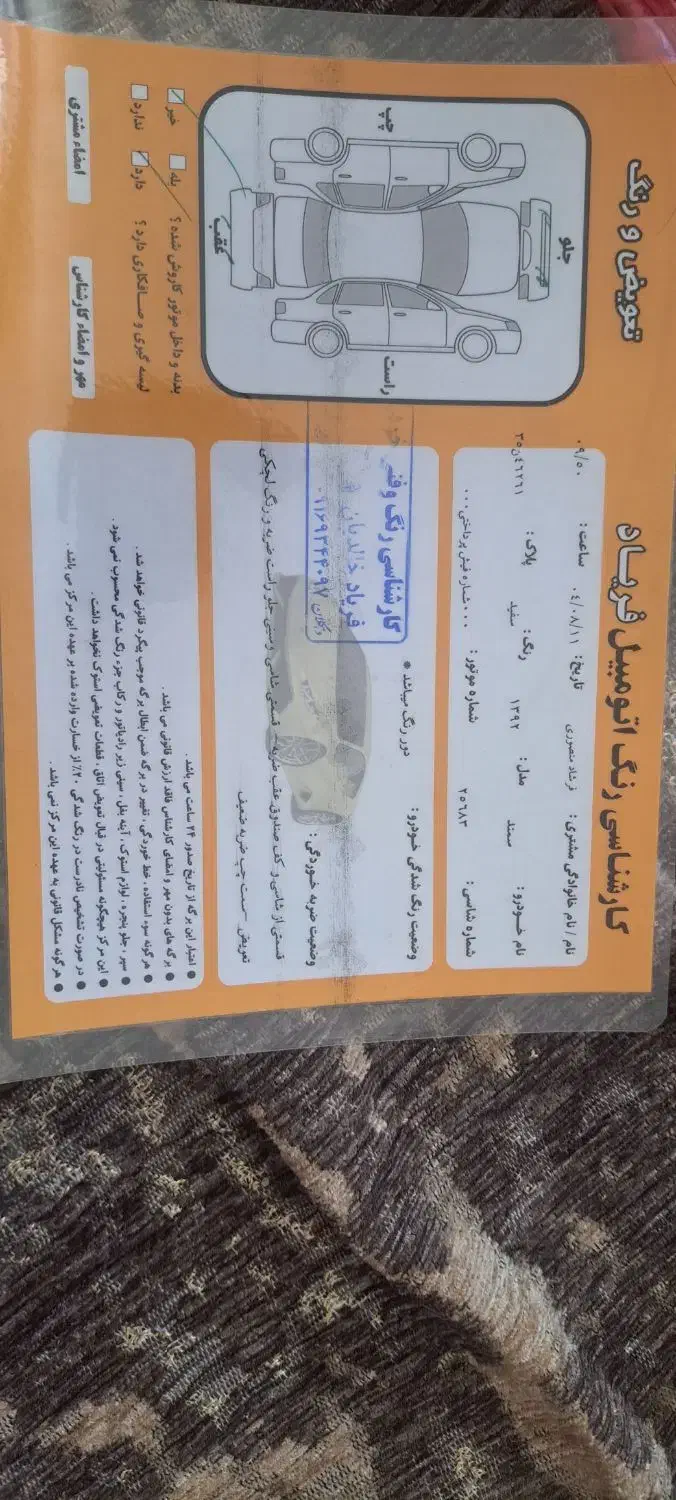 کارشناسی رنگ اتومبیل فریاد
نام / نام خانوادگی مشتری : فرشاد منصوری تاریخ : ۰۴/۰۸/۱۱ ساعت : ۰۹/۵۰
نام خودرو : سمند مدل : ۱۳۹۲ رنگ : سفید پلاک :
شماره شاسی : ۲۵۶۸۳ شماره موتور :
وضعیت رنگ شدگی خودرو :
دور رنگ میباشد *
کارشناسی رنگ وفنی
فریاد خالدیان
وضعیت ضربه خوردگی :
قسمتی از شاسی و کف صندوق عقب ضربه
تعویض سمت چپ ضربه ضعیف
● اعتبار این برگه از تاریخ صدور ۲۴ ساعت می باشد .
● برگه های بدون مهر و امضای کارشناس فاقد ارزش قانونی می باشد .
● هر گونه سوء استفاده ، خط خوردگی ، تغییر در برگه ضمن ابطال برگه موجب پیگرد قانونی خواهد شد .
● سپر ، جلو پنجره ، لوازم استوک ، آینه بغل ، سینی زیر رادیاتور و رکاب جزء رنگ شدگی محسوب نمی شود .
● این مرکز هیچگونه مسئولیتی در قبال تعویض اتاق ، قطعات تعویضی استوک نخواهد داشت .
● در صورت تشخیص نادرست در رنگ شدگی ۲۰٪ از خسارت وارده شده بر عهده این مرکز می باشد .
● هر گونه مشکل قانونی به عهده این مرکز نمی باشد .
تعویض و رنگ
جلو
چپ
راست
عقب
بدنه و داخل موتور کاروش شده ؟ بله خیر
لیسه گیری و صافکاری دارد ؟ دارد ندارد
مهر و امضاء کارشناس
امضاء مشتری